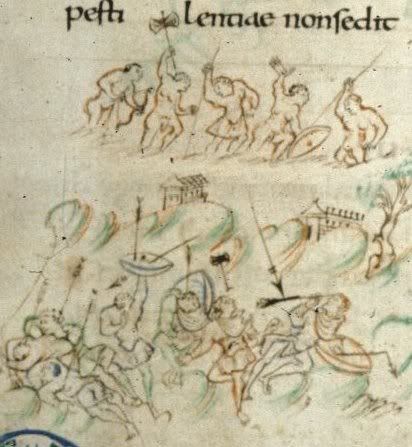 pesti lentiae non sedit